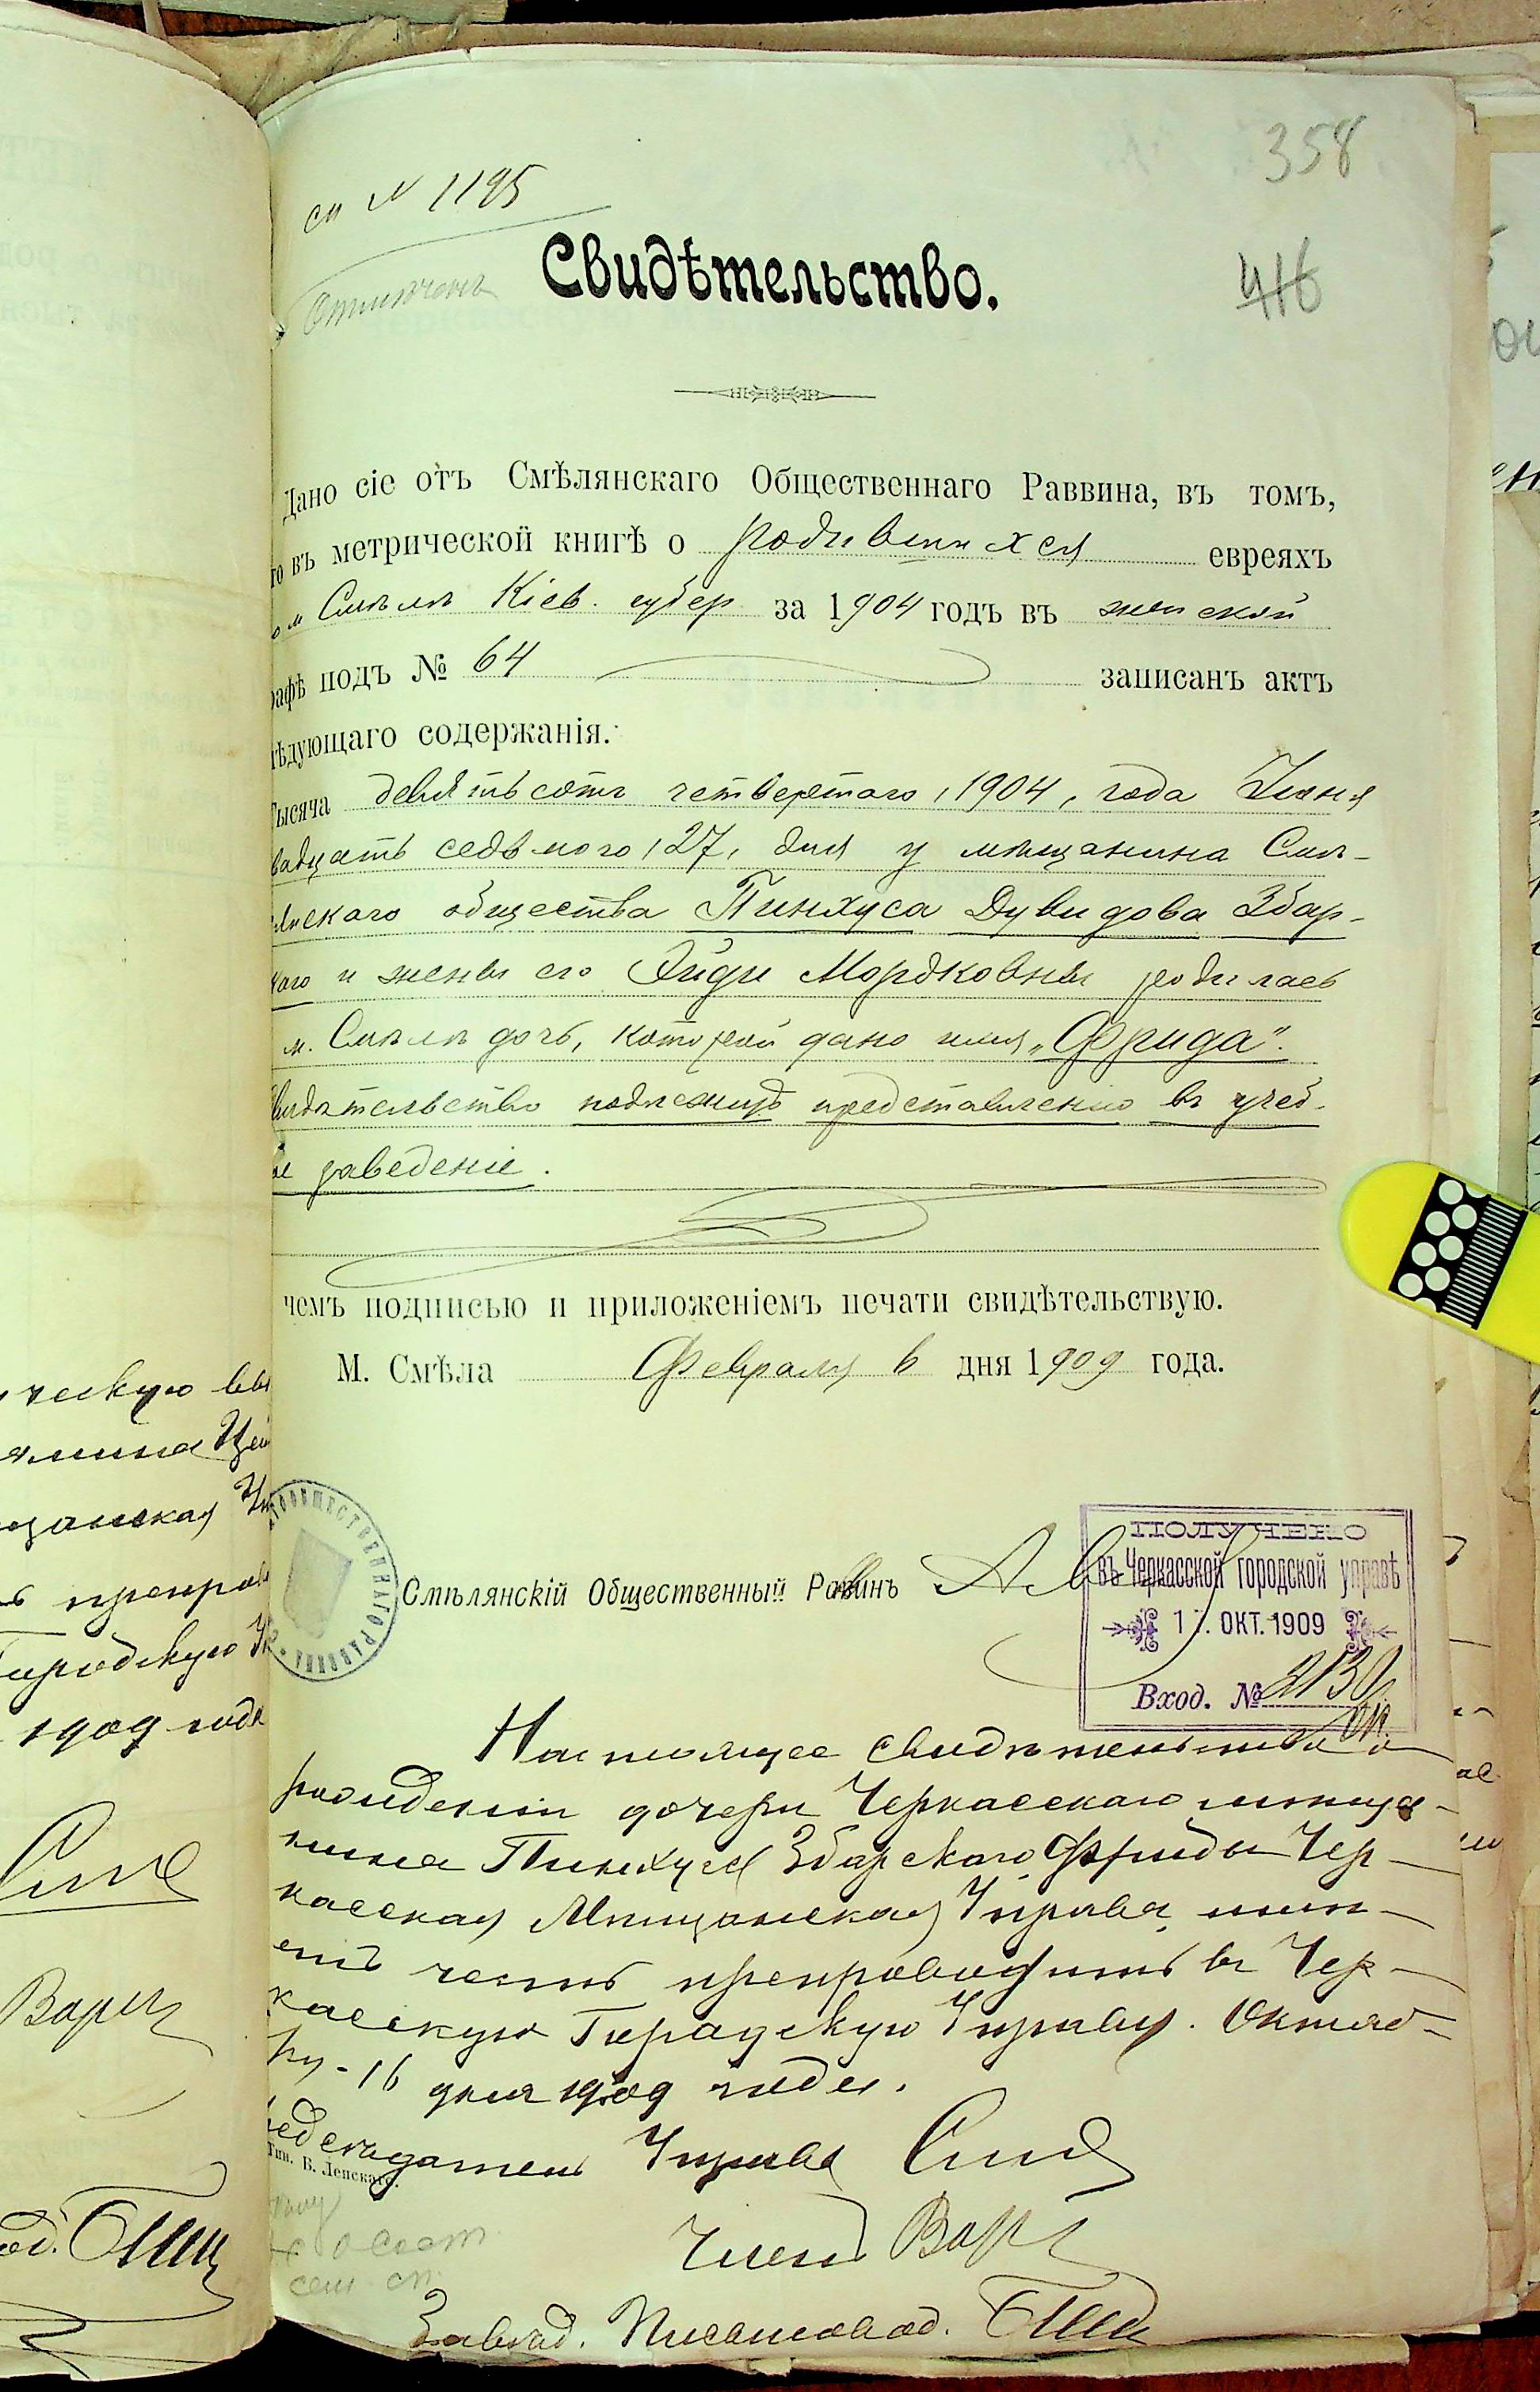 358
см № 1195
416
Свидѣтельство.
Дано сіе отъ Смѣлянскаго Общественнаго Раввина, въ томъ,
то въ метрической книгѣ о родившихся евреяхъ
м Смѣлѣ Кіев. губер за 1904 годъ въ женской
рафѣ подъ № 64 записанъ актъ
ѣдующаго содержанія.
Тысяча девятьсотъ четвертаго, 1904, года Іюня
вадцать седьмого, 27, дня у мѣщанина Смѣ-
лянскаго общества Пинхуса Дувидова Збар-
каго и жены его Эйди Мордковны родилась
м. Смѣлѣ дочь, которой дано имя „Фрида".
видѣтельство подлежитъ представленію въ учеб-
ое заведеніе.
чемъ подписью и приложеніемъ печати свидѣтельствую.
М. Смѣла Февраля 6 дня 1909 года.
ОБЩЕСТВЕННАГО РАВВИНА
Смѣлянскій Общественный Равинъ
ПОЛУЧЕНО
въ Черкасской городской управѣ
ОКТ. 1909
Вход. № 2130
Настоящее свидѣтельство о
рожденіи дочери Черкасскаго мѣща-
нина Пинхуса Збарскаго Фриды Чер-
касская Мѣщанская Управа имѣ-
етъ честь препроводить въ Чер-
касскую Городскую Управу. Октяб-
ря - 16 дня 1909 года.
редсѣдатель Управы
Тип. В. Ленскаго.
Членъ
Завѣд. Письмовод.
ческую вы
щанская
ь препров
Городскую
1909 года